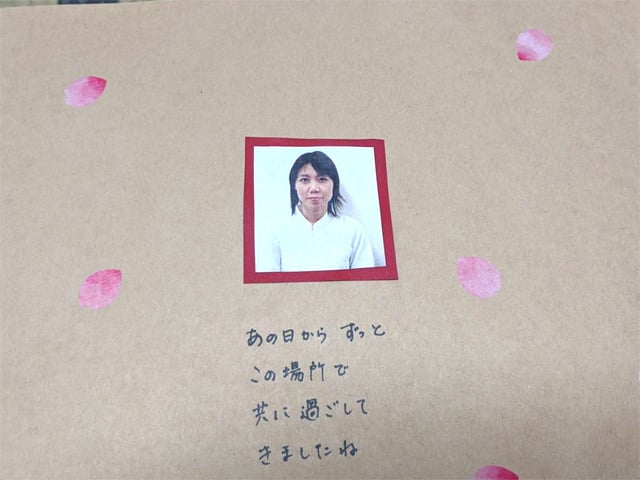 あの日から ずっと
この場所で
共に過ごして
きましたね